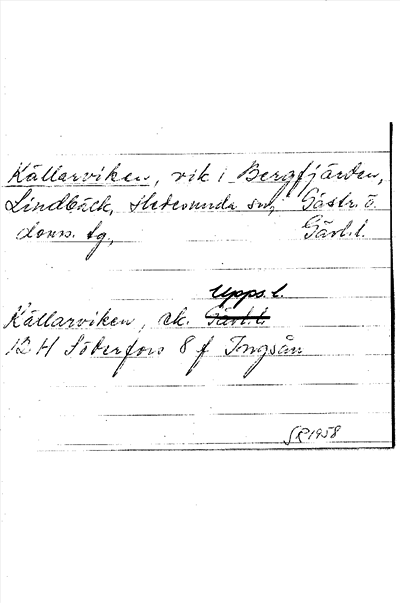 Källarviken, vik i Bergfjärden,
Lindbäck, Hedesunda sn, Gästr. ö.
doms. tg, Gävl. l.
Upps. l.
Källarviken, ek. Gävl. l.
12 H Söderfors 8 f Tngsån
SR 1958